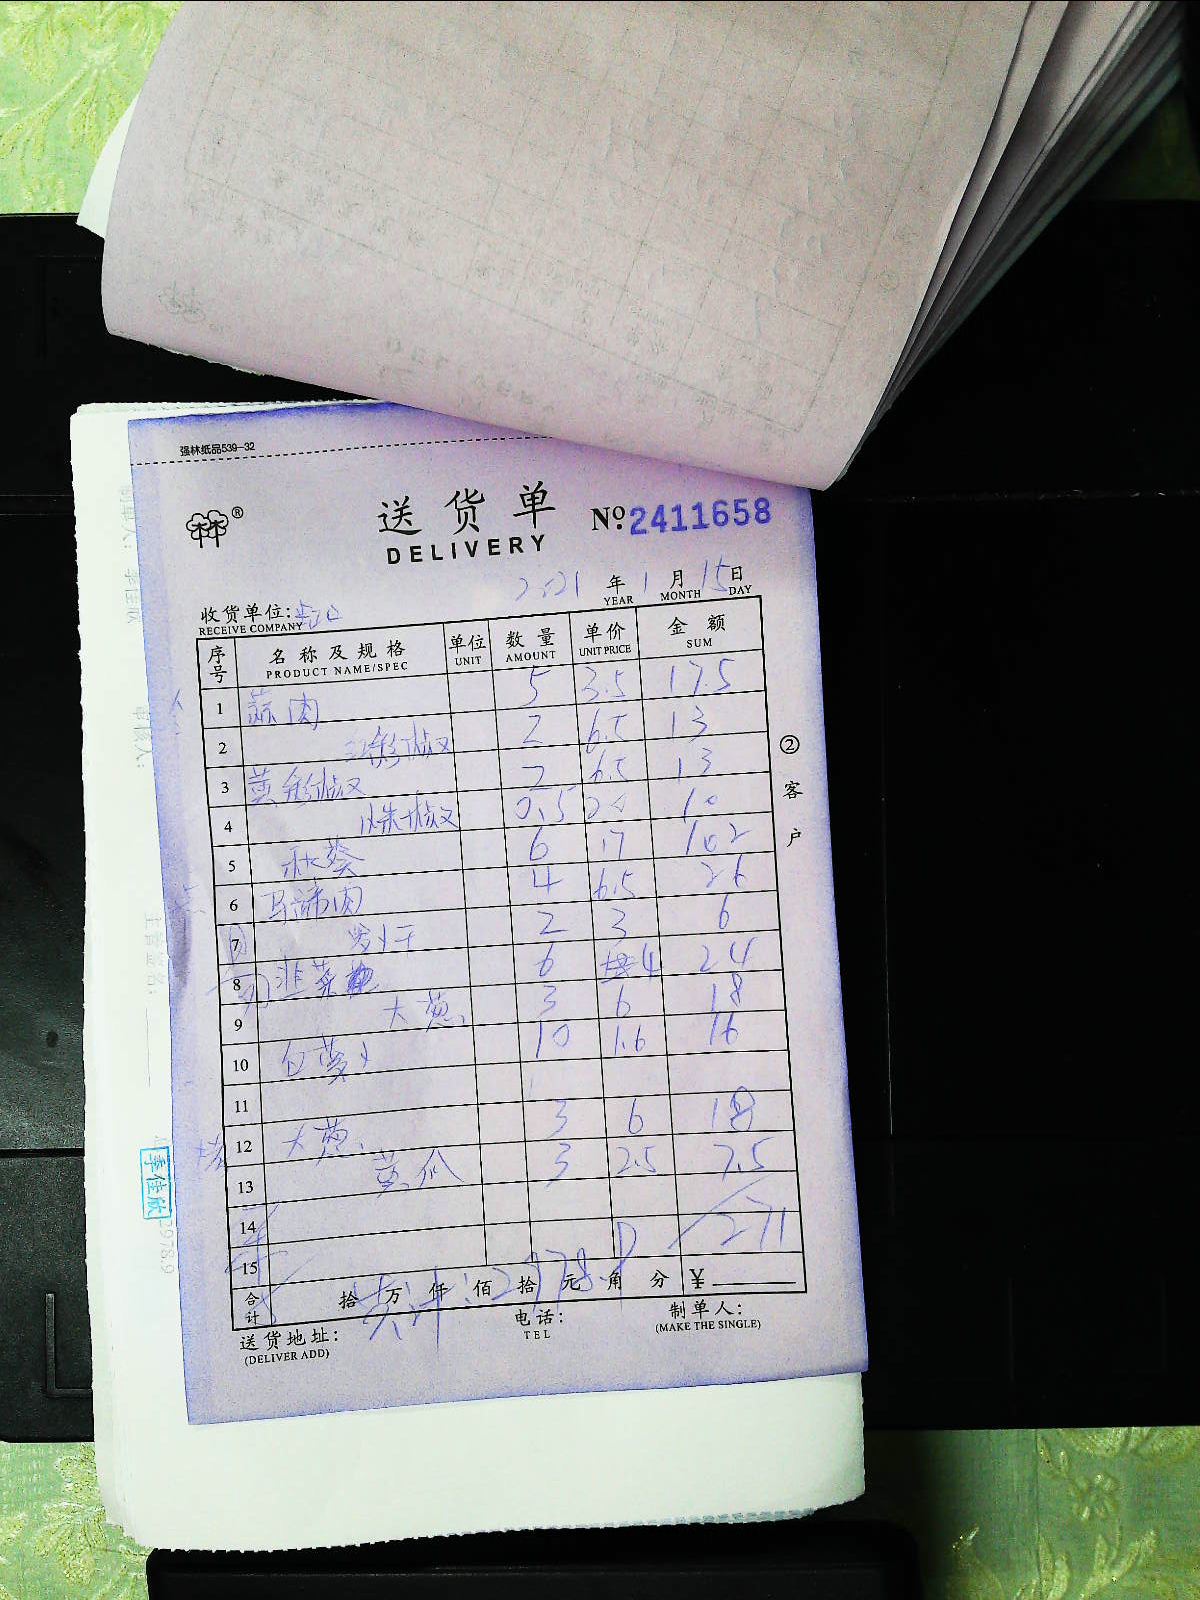 强林纸品539-32
林林®
送货单
DELIVERY
№ 2411658
2021年1月15日
YEAR MONTH DAY
收货单位:
RECEIVE COMPANY
序号 名称及规格 单位 数量 单价 金额
PRODUCT NAME/SPEC UNIT AMOUNT UNIT PRICE SUM
1 蒜肉 5 3.5 17.5
2 红彩椒 2 6.5 13
3 黄彩椒 2 6.5 13
4 椒 0.5 20 10
5 秋葵 6 17 102
6 马蹄肉 4 6.5 26
7 2 3 6
8 韭菜 6 4 24
9 大葱 3 6 18
10 10 1.6 16
11
12 大葱 3 6 18
13 黄瓜 3 2.5 7.5
14
15 271
合计 拾 万 仟 佰 拾 元 角 分 ¥
共计:2978.9
送货地址:
(DELIVER ADD)
电话:
TEL
制单人:
(MAKE THE SINGLE)
②客户
李佳欣
2978.9